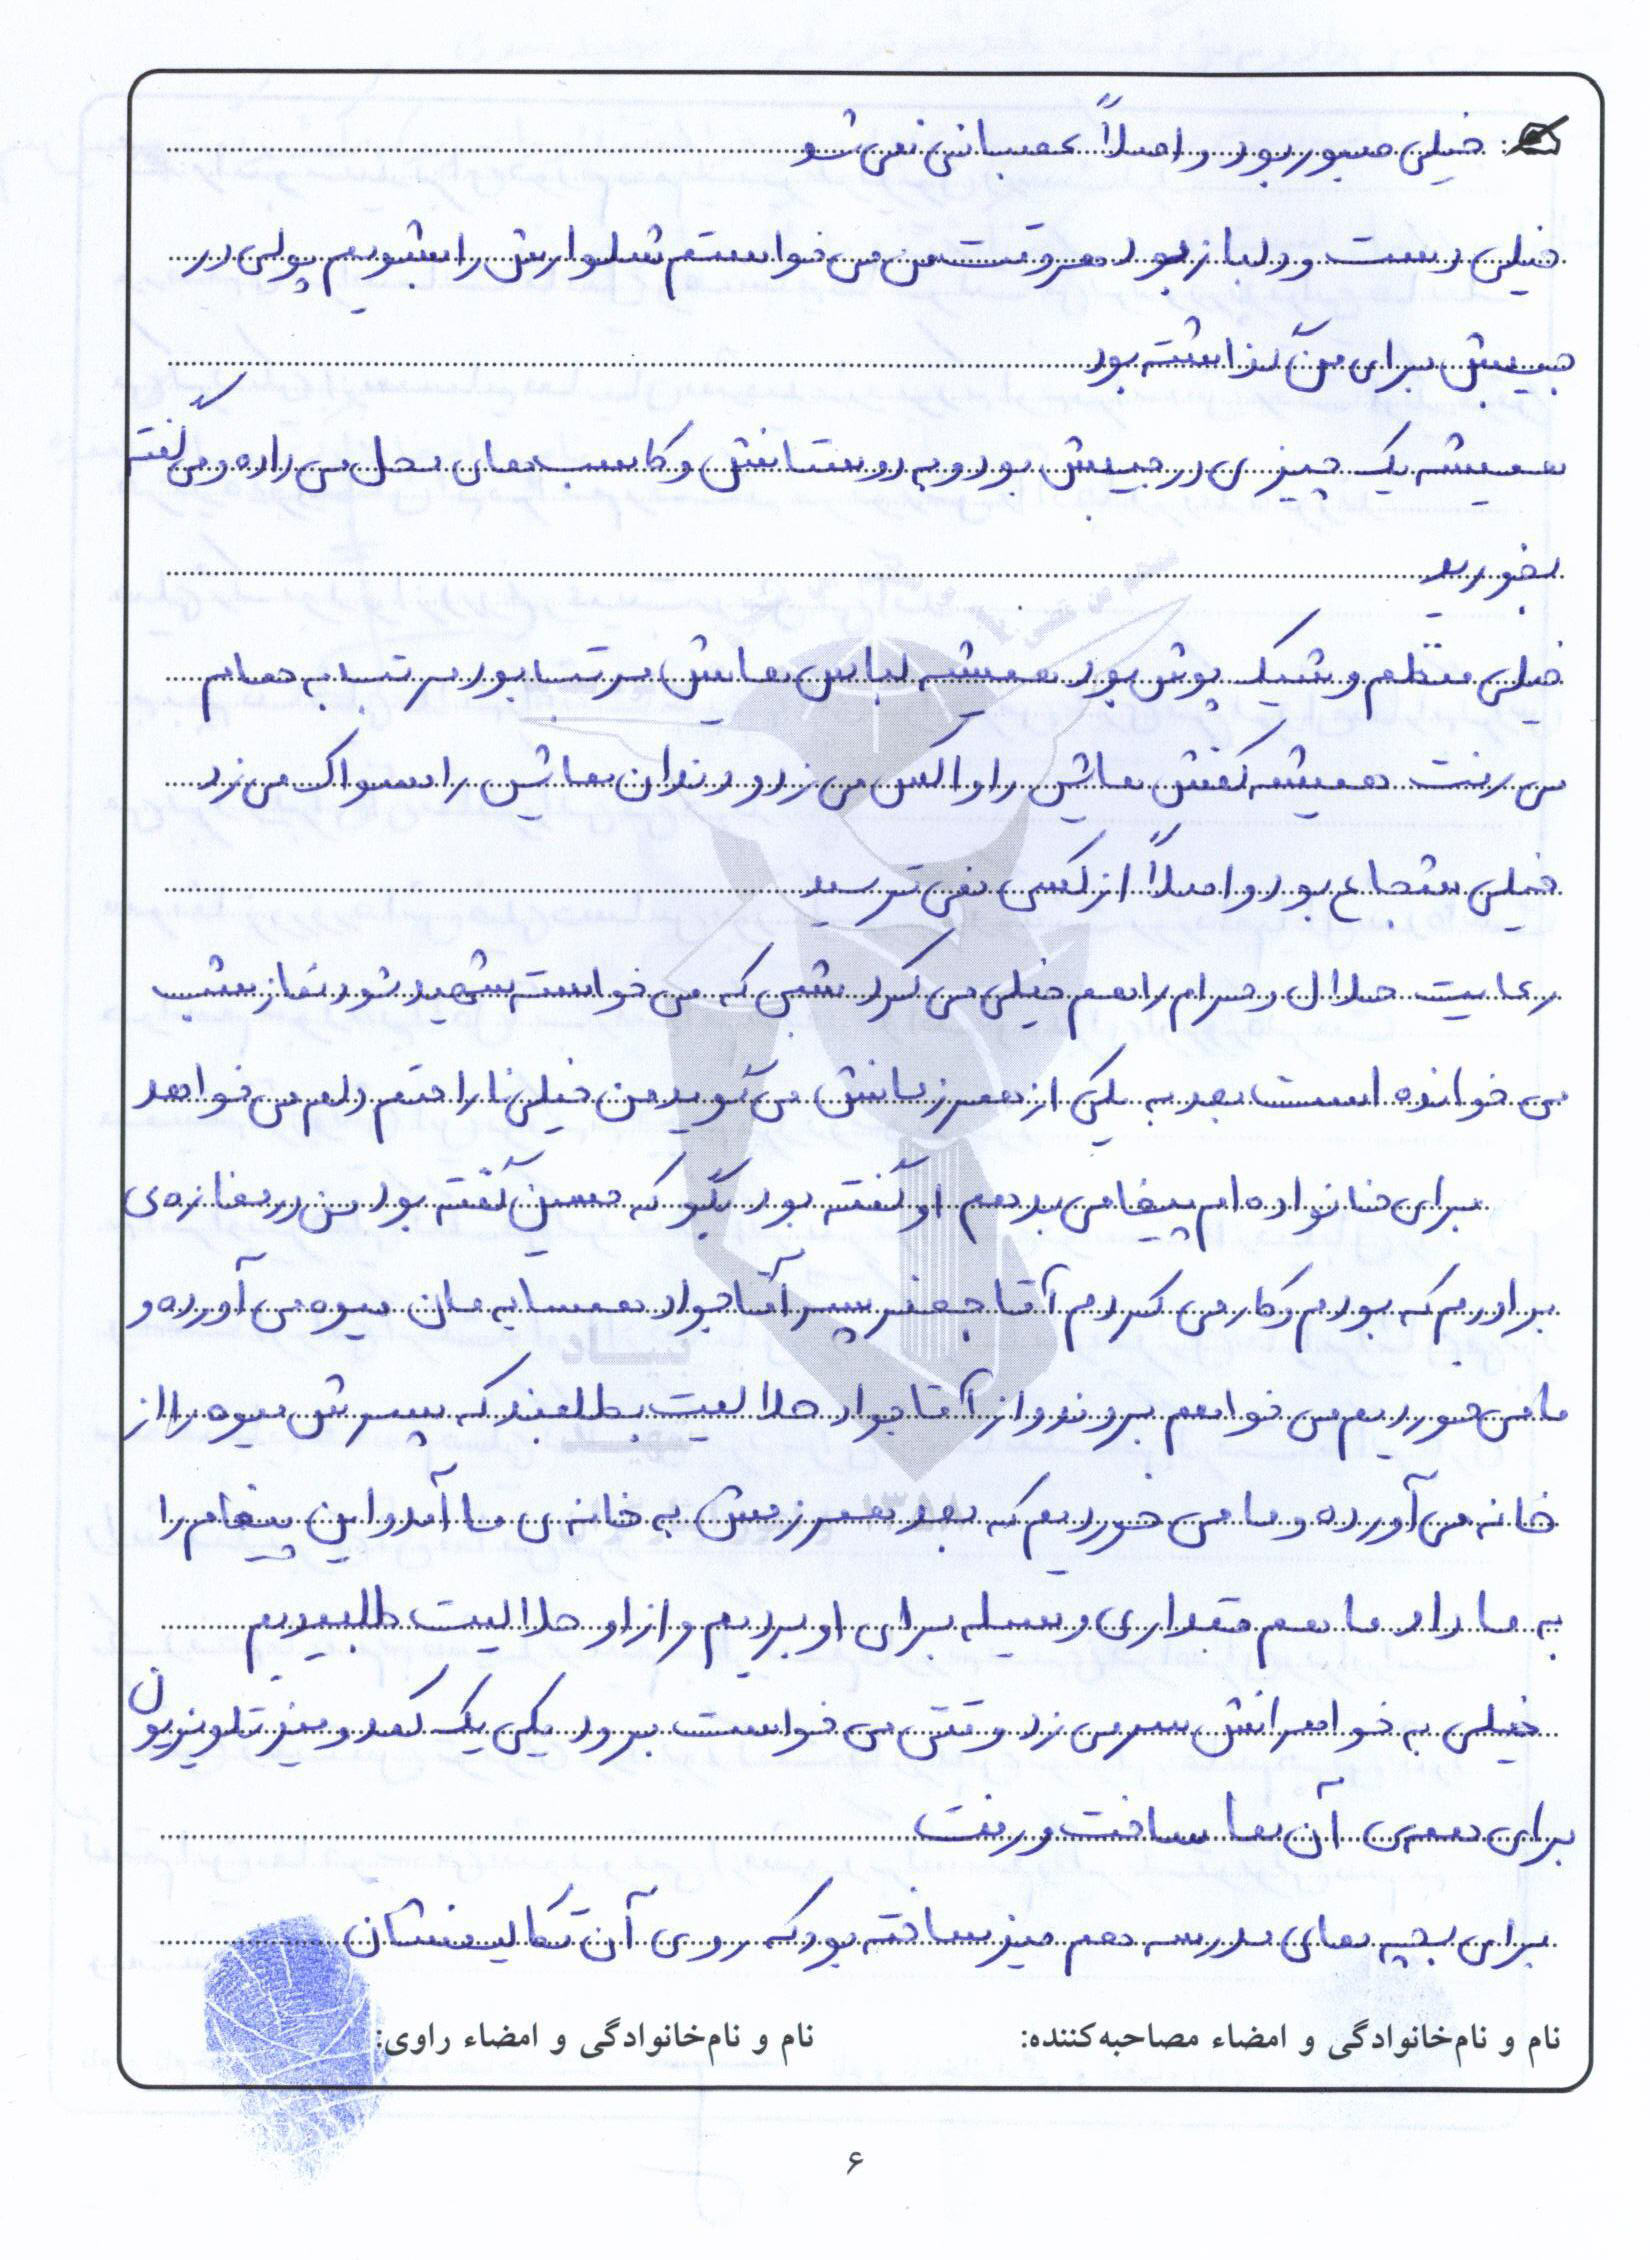 خیلی صبور بود و اصلاً عصبانی نمی شو
خیلی دست و دلباز بود هر وقت من می خواستم شلوارش را بشویم پولی در
جیبش برای من گذاشته بود
همیشه یک چیزی در جیبش بود و به دوستانش و کاسب های محل می داده و می گفته
بخورید
خیلی منظم و شیک پوش بود همیشه لباس هایش مرتب بود مرتب به حمام
می رفت همیشه کفش هایش را واکس می زد و دندان هایش را مسواک می زد
خیلی شجاع بود و اصلاً از کسی نمی ترسید
رعایت حلال و حرام را هم خیلی می کرد شبی که می خواسته شهید شود نماز شب
می خوانده است بعد به یکی از همرزمانش می گوید من خیلی ناراحتم دلم می خواهد
برای خانواده ام پیغامی بدهم او گفته بود بگو که حسین گفته بود من در مغازه ی
برادرم که بودم و کار می کردم آقا جعفر پسر آقا جواد همسایه مان میوه می آورده و
ما می خوردیم می خواهم بروند و از آقا جواد حلالیت بطلبند که پسرش میوه را از
خانه می آورده و ما می خوردیم که بعد همرزمش به خانه ی ما آمد و این پیغام را
به ما داد ما هم مقداری وسیله برای او بردیم و از او حلالیت طلبیدیم
خیلی به خواهرانش سر می زد وقتی می خواست برود یکی یک کمد و میز تلویزیون
برای همه ی آن ها ساخت و رفت
برای بچه های مدرسه هم میز ساخته بود که روی آن تکالیفشان
نام و نام‌خانوادگی و امضاء مصاحبه‌کننده:
نام و نام‌خانوادگی و امضاء راوی:
۶